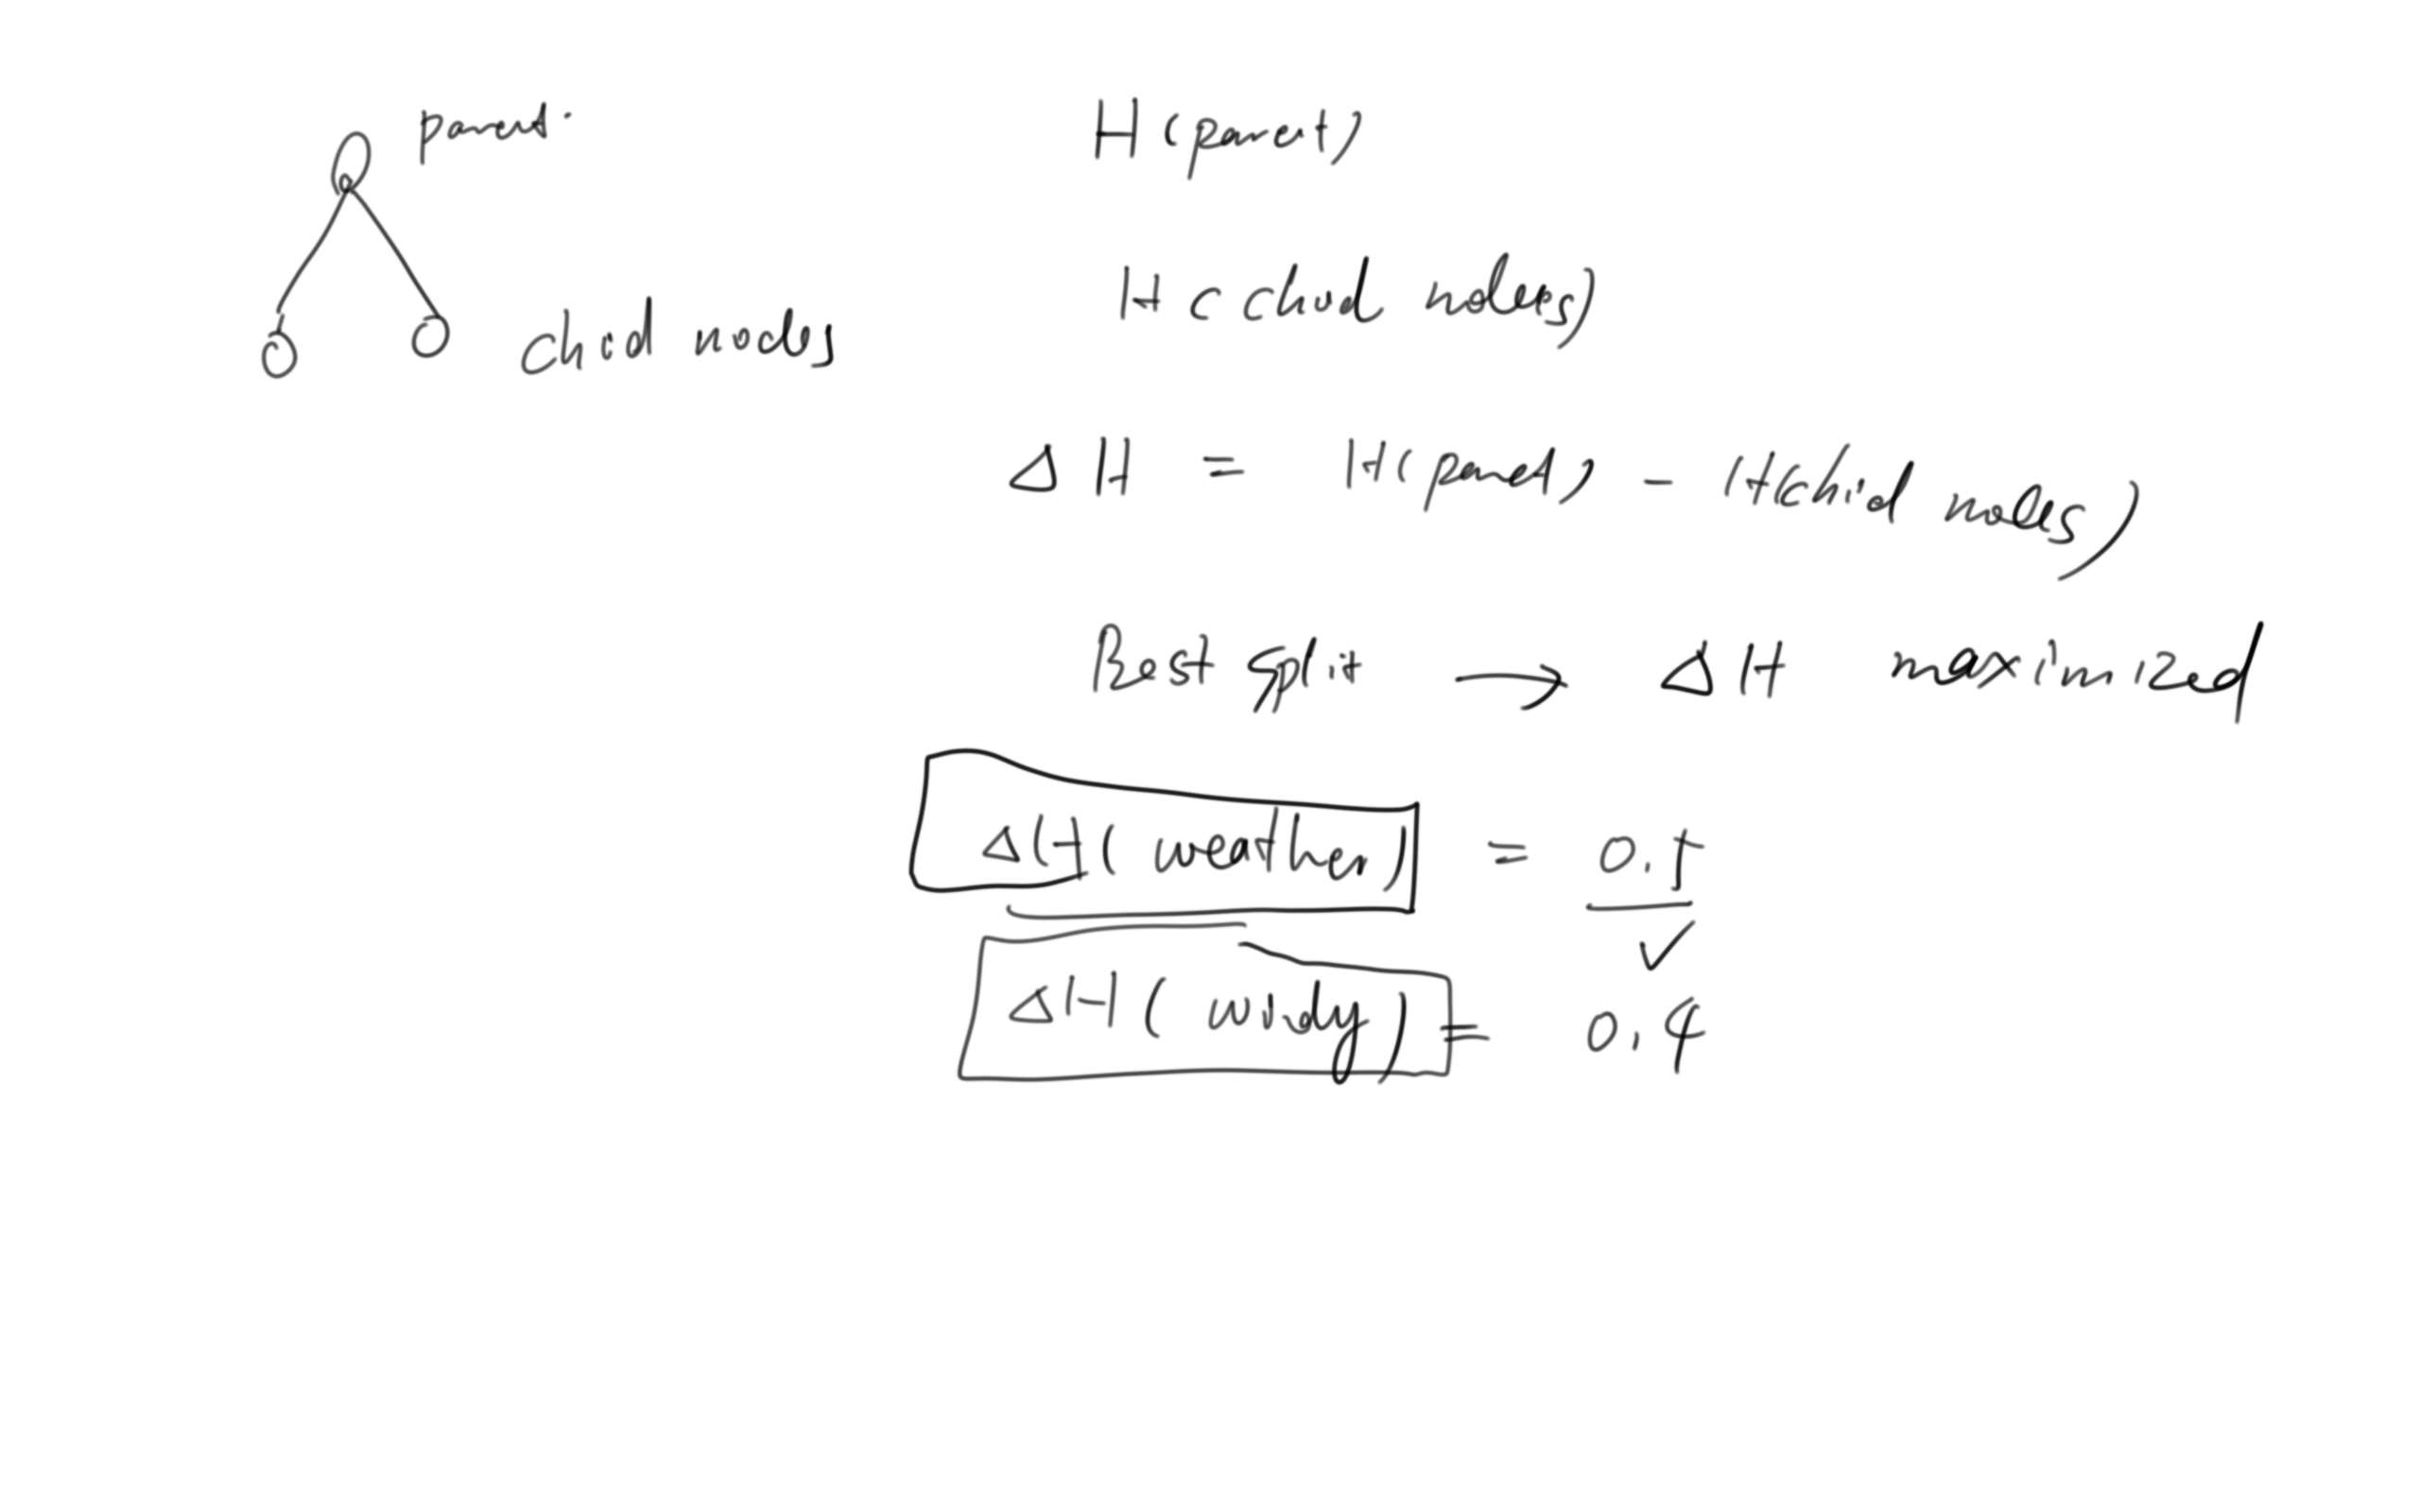 parent.
child nodes
H(parent)
H(child nodes)
ΔH = H(parent) - H(child nodes)
Best split → ΔH maximized
ΔH(weather) =
ΔH(windy) = 0.4